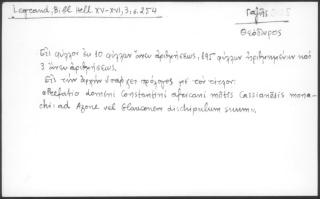 Legrand, Bibl. Hell XV-XVI, 3, σ. 254
Γαζῆς
Θεόδωρος
Εἰς φύλλον ἐκ 10 φύλλων ἄνευ ἀριθμήσεως, 195 φύλλων ἠριθμημένων καὶ
3 ἄνευ ἀριθμήσεως.
Εἰς τὴν ἀρχὴν ὑπάρχει πρόλογος μὲ τὸν τίτλον:
«Prefatio domini Constantini africani mõtis Cassianẽsis mona-
chi: ad Azone vel Glauconem discipulum suum».